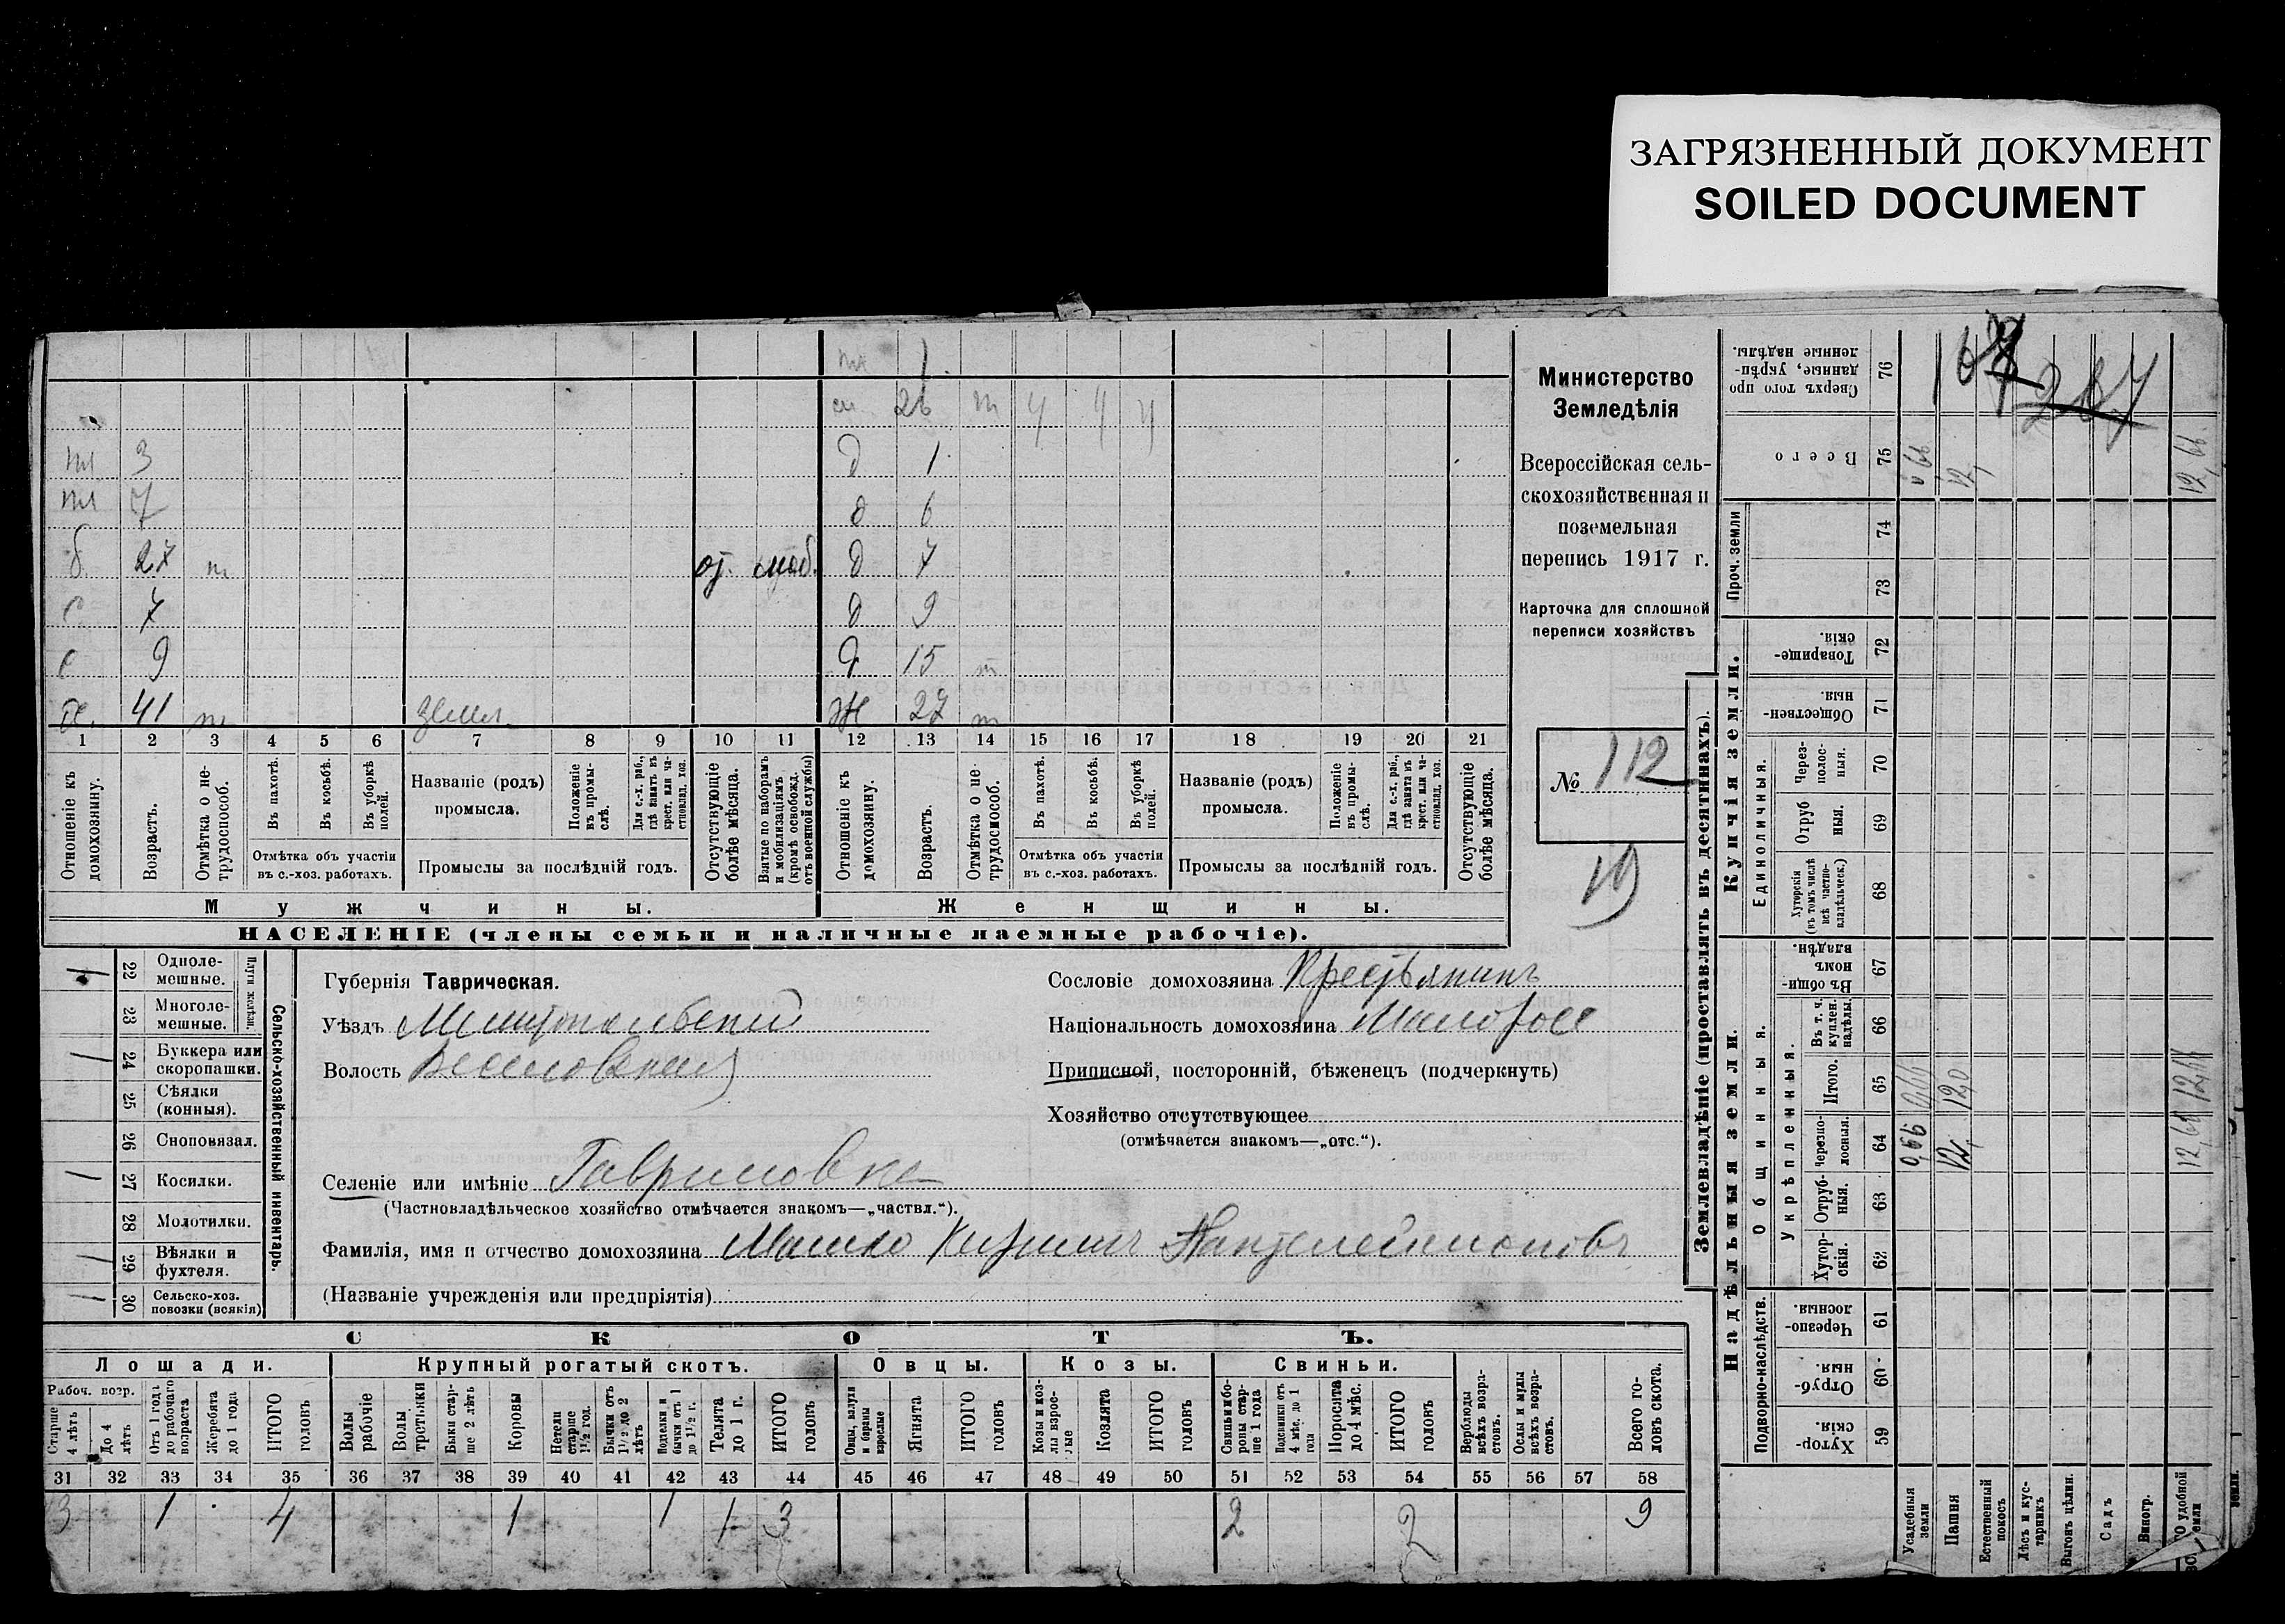 ЗАГРЯЗНЕННЫЙ ДОКУМЕНТ
SOILED DOCUMENT
1
26 т
тл 3 д 1
тл 7 д 6
б. 27 т от. моб. д 7
с. 7 д 9
с 9 д 15 т
х. 41 т земл. ж 27 т
1 2 3 4 5 6 7 8 9 10 11 12 13 14 15 16 17 18 19 20 21
Отношеніе къ домохозяину.
Возрастъ.
Отмѣтка о нетрудоспособ.
Въ пахотѣ.
Въ косьбѣ.
Въ уборкѣ полей.
Отмѣтка объ участіи
въ с.-хоз. работахъ.
Названіе (родъ)
промысла.
Положеніе въ промыслѣ.
Для с.-х. раб., гдѣ занятъ въ крест. или частновлад. хоз.
Промыслы за послѣдній годъ.
Отсутствующіе болѣе мѣсяца.
Взятые по наборамъ и мобилизаціямъ (кромѣ освобожд. отъ военной службы)
Отношеніе къ домохозяину.
Возрастъ.
Отмѣтка о нетрудоспособ.
Въ пахотѣ.
Въ косьбѣ.
Въ уборкѣ полей.
Отмѣтка объ участіи
въ с.-хоз. работахъ.
Названіе (родъ)
промысла.
Положеніе въ промыслѣ.
Для с.-х. раб., гдѣ занятъ въ крест. или частновлад. хоз.
Промыслы за послѣдній годъ.
Отсутствующіе болѣе мѣсяца.
Мужчины.
Женщины.
НАСЕЛЕНІЕ (члены семьи и наличные наемные рабочіе).
Министерство
Земледѣлія
Всероссійская сель-
скохозяйственная и
поземельная
перепись 1917 г.
Карточка для сплошной
переписи хозяйствъ
№ 112
19
Сельско-хозяйственный инвентарь.
Плуги желѣзн.
1 22 Однолемешные.
23 Многолемешные.
1 24 Буккера или скоропашки.
25 Сѣялки (конныя).
26 Сноповязал.
1 27 Косилки.
28 Молотилки.
1 29 Вѣялки и фухтеля.
1 30 Сельско-хоз. повозки (всякія)
Губернія Таврическая.
Уѣздъ Мелитопольскій
Волость Веселовская
Селеніе или имѣніе Гавриловка
(Частновладѣльческое хозяйство отмѣчается знакомъ—„частвл.“).
Фамилія, имя и отчество домохозяина Машко Кирилъ Пантелеймоновъ
(Названіе учрежденія или предпріятія)
Сословіе домохозяина Крестьянинъ
Національность домохозяина Малоросс
Приписной, посторонній, бѣженецъ (подчеркнуть)
Хозяйство отсутствующее
(отмѣчается знакомъ—„отс.“).
СКОТЪ.
Лошади.
Крупный рогатый скотъ.
Овцы.
Козы.
Свиньи.
Рабоч. возр.
Старше 4 лѣтъ
До 4 лѣтъ
Отъ 1 года до рабочаго возраста
Жеребята до 1 года
ИТОГО головъ
Волы рабочіе
Волы третьяки
Быки старше 2 лѣтъ
Коровы
Нетели старше 1½ год.
Бычки отъ 1½ до 2 лѣтъ
Подтелки и бычки отъ 1 до 1½ г.
Телята до 1 г.
ИТОГО головъ
Овцы, валухи и бараны взрослые
Ягнята
ИТОГО головъ
Козы и козлы взрослые
Козлята
ИТОГО головъ
Свиньи и боровы старше 1 года
Подсвинки отъ 4 мѣс. до 1 года
Поросята до 4 мѣс.
ИТОГО головъ
Верблюды всѣхъ возрастовъ.
Ослы и мулы всѣхъ возрастовъ.
Всего головъ скота.
31 32 33 34 35 36 37 38 39 40 41 42 43 44 45 46 47 48 49 50 51 52 53 54 55 56 57 58
3 1 4 1 1 1 3 2 2 9
Землевладѣніе (проставлять въ десятинахъ).
Купчія земли.
Надѣльныя земли.
Сверхъ того проданные, укрѣпленные надѣлы. 76
167
267
Всего 75 0,66 12, 12,66
Проч. земли
74
73
Товарищескія. 72
Общественныя. 71
Единоличныя.
Черезполосныя. 70
Отрубныя. 69
Хуторскія (въ томъ числѣ всѣ частновладѣльческ.) 68
Общинныя.
Въ общинномъ владѣн. 67
Укрѣпленныя.
Въ т. ч. куплен. надѣлы. 66
Итого. 65 0,66 12,0 12,66
Черезполосныя. 64 0,66 12, 12,66
Отрубныя. 63
Хуторскія. 62
Подворно-наслѣдств.
Черезполосныя. 61
Отрубныя. 60
Хуторскія. 59
Усадебныя земли
Пашня
Естественный покосъ
Лѣсъ и кустарникъ
Выгонъ цѣлин.
Садъ
Виногр.
удобной земли